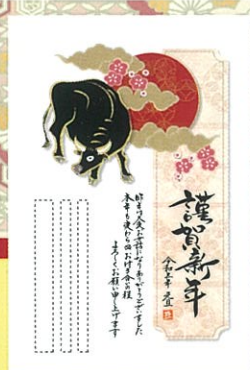 謹賀新年
令和三年 元旦
昨年は大変お世話になりありがとうございました
本年も変わらぬお付き合いの程
よろしくお願い申し上げます